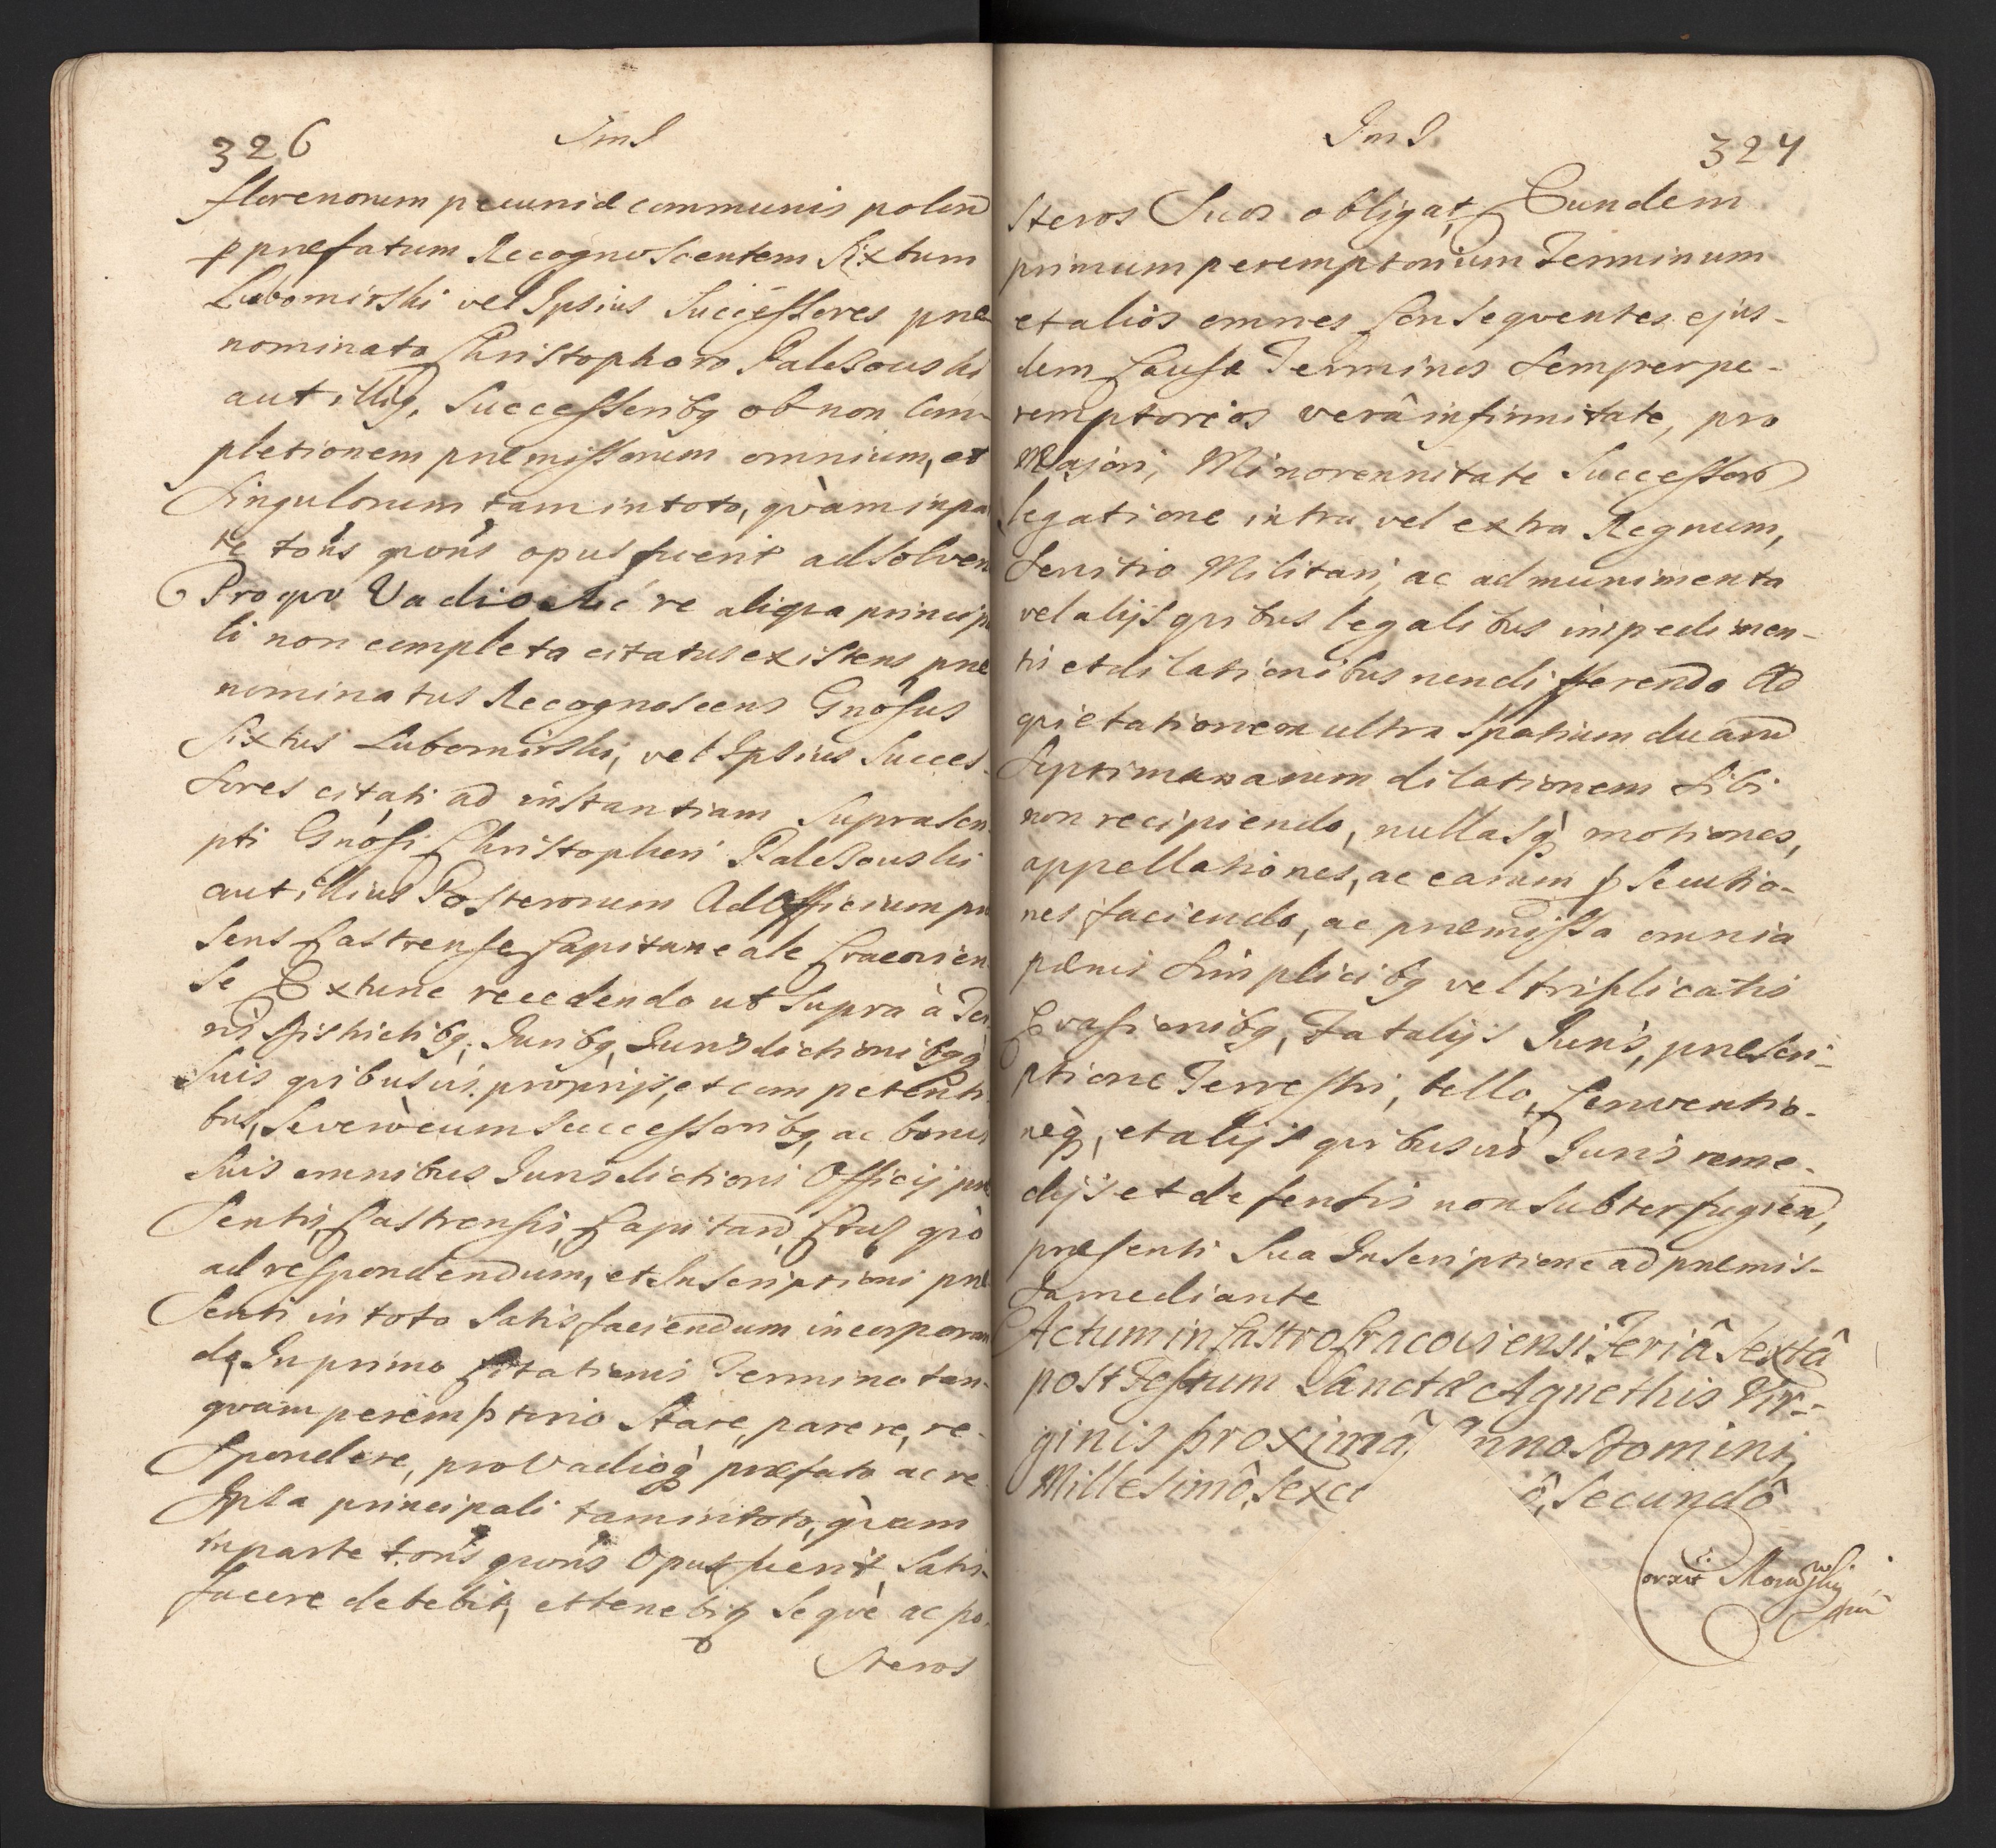 326
florenorum pecuniæ communis polon
p præfatum Recognoscentem Sixtum
Lubomirski vel Ipsius Successores præ
nominato Christophoro Palczouski
aut illiq, Successoribq ob non Com-
pletionem præmissorum omnium, et
Singulorum tam in toto, qvàm in pa
te tors qvors opus fuerit adsolven
Pro qvo Vadio Ac re aliqva princip
li non completa citatus existens præ
nominatus Recognoscens Gnosus
Sixtus Lubomirski, vel Ipsius Succes-
sores citati ad instantiam Suprascri
pti Gnosi Christopheri Palczouski
aut illius Posterorum Ad Officium præ
sens Castrense Capitaneale Cracovien
se Extunc recedendo ut Supra à Ter
ris Districtibq, Juribq, Jurisdictionibqq
Suis qvibusvis proprijs, et competenti
bus, Se verò cum Successoribq, ac bonis
Suis omnibus Jurisdictioni Officij præ
sentis Castrensis Capitan, qvò
ad respondendum, et Inscriptioni præ
senti in toto Satisfaciendum incorporan
do, In primo Citationis Termino tan-
qvam peremptorio Stare, parere, re-
spondere, pro Vadioq præfato ac re
Ipsa principali tam in toto, qvam
in parte tors qvors Opus fuerit, Satis-
facere debebit, et tenebitq Se qvè ac po-
steros
324
steros Suos obligat, Eundem
primum peremptorium Terminum
et alios omnes Conseqventes ejus-
dem Causæ Terminos Semper pe-
remptorios verâ infirmitate, pro
Majori, Minorennitate Successorum
legatione intra vel extra Regnum,
Servitio Militari, ac ad munimenta
vel alijs qvibus legalibus impedimen-
tis et dilationibus non differendo Ad
qvietationem ultra Spatium duarum
Septimanarum dilationem Sibi
non recipiendo, nullasq motiones,
appellationes, ac earum p Secutio-
nes faciendo, ac præmissa omnia
pænis Simplicibq vel triplicatis
Evasionibq, Fatalijs Juris, præscri-
ptione Terrestri, bello, Conventio-
neq, et alijs qvibusvis Juris reme-
dijs et defensis non Subterfugien,
præsenti Sua Inscriptione ad præmis-
sa mediante
Actum in Castro Cracoviensi Feriâ Sextâ
post Festum Sanctæ Agnethis Vir-
ginis proximâ, Anno Domini
Millesimô, Sexce ô, Secundô